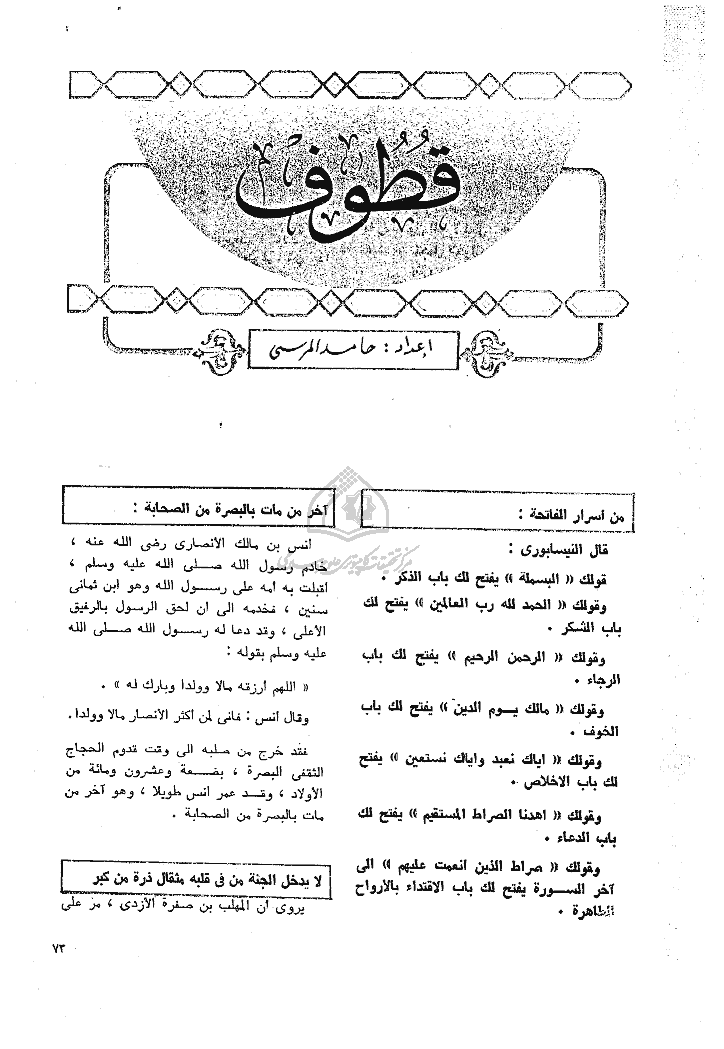 قُطُوف
إعداد : حامد المرسى
من أسرار الفاتحة :
قال النيسابورى :
قولك « البسملة » يفتح لك باب الذكر .
وقولك « الحمد لله رب العالمين » يفتح لك
باب الشكر .
وقولك « الرحمن الرحيم » يفتح لك باب
الرجاء .
وقولك « مالك يوم الدين » يفتح لك باب
الخوف .
وقولك « اياك نعبد واياك نستعين » يفتح
لك باب الاخلاص .
وقولك « اهدنا الصراط المستقيم » يفتح لك
باب الدعاء .
وقولك « صراط الذين انعمت عليهم » الى
آخر السورة يفتح لك باب الاقتداء بالأرواح
الطاهرة .
آخر من مات بالبصرة من الصحابة :
انس بن مالك الانصارى رضى الله عنه ،
خادم رسول الله صلى الله عليه وسلم ،
اقبلت به أمه على رسول الله وهو ابن ثمانى
سنين ، فخدمه الى ان لحق الرسول بالرفيق
الأعلى ، وقد دعا له رسول الله صلى الله
عليه وسلم بقوله :
« اللهم ارزقه مالا وولدا وبارك له » .
وقال أنس : فانى لمن أكثر الأنصار مالا وولدا .
فقد خرج من صلبه الى وقت قدوم الحجاج
الثقفى البصرة ، بضعة وعشرون ومائة من
الأولاد ، وقد عمر انس طويلا ، وهو آخر من
مات بالبصرة من الصحابة .
لا يدخل الجنة من فى قلبه مثقال ذرة من كبر
يروى ان المهلب بن صفرة الأزدى ، مر على
٧٣